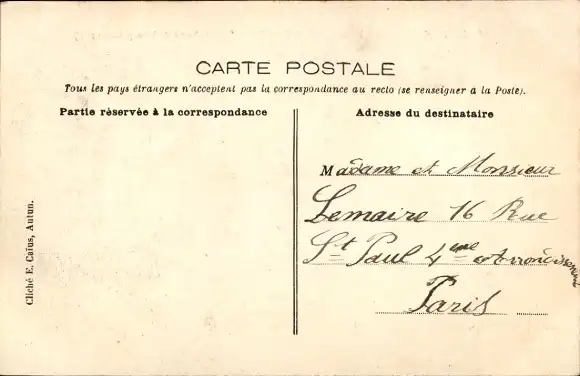 CARTE POSTALE
Tous les pays étrangers n'acceptent pas la correspondance au recto (se renseigner à la Poste).
Partie réservée à la correspondance
Adresse du destinataire
Madame et Monsieur
Lemaire 16 Rue
St Paul 4eme Arrondissement
Paris
Cliché E. Caïus, Autun.